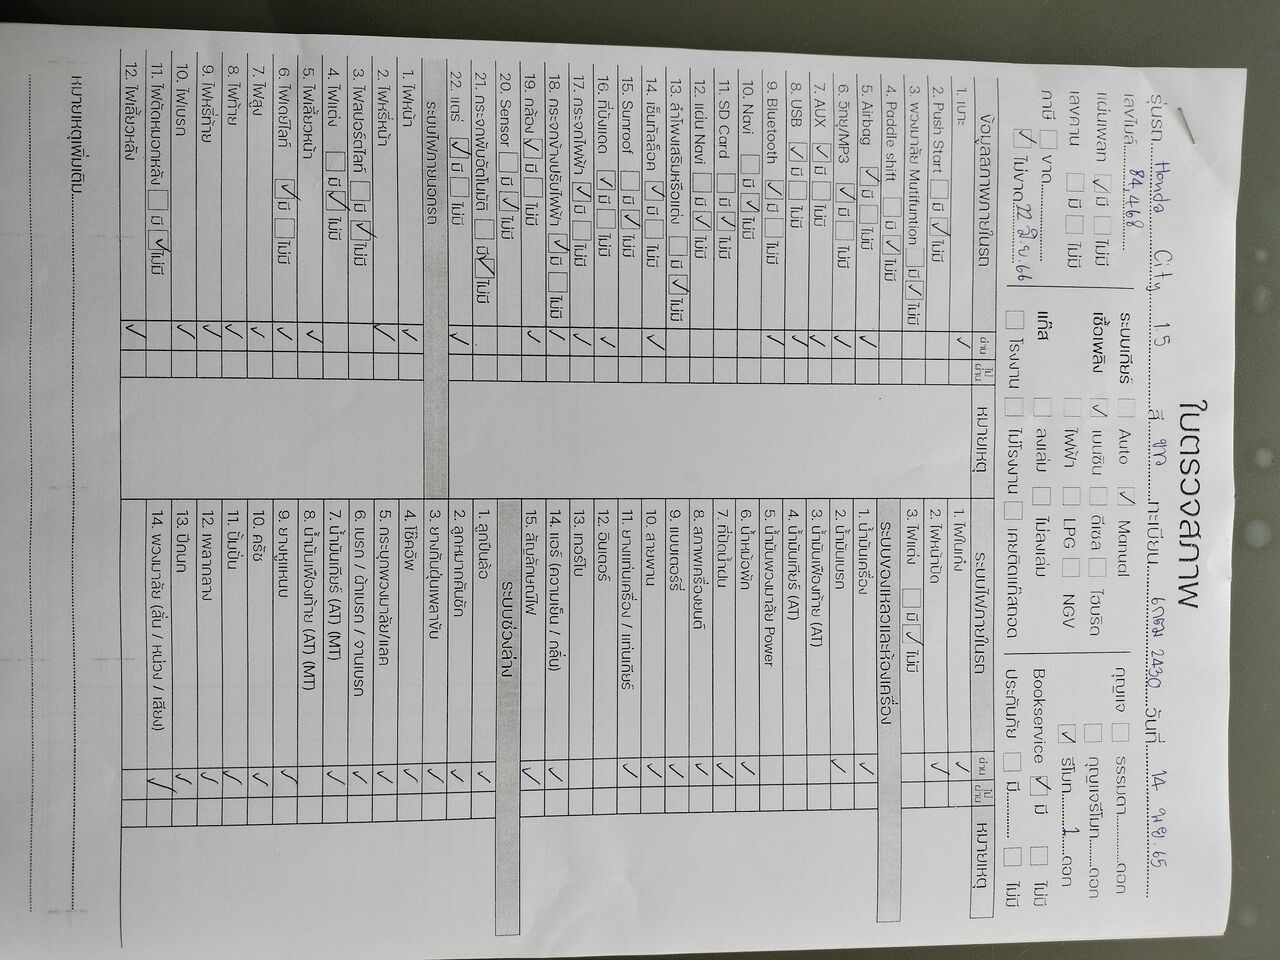 ใบตรวจสภาพ
รุ่นรถ Honda City 1.5 สี ขาว ทะเบียน 6กฌม 2430 วันที่ 14 พ.ย. 65
เลขไมล์ 84468 ระบบเกียร์ ☐ Auto ☑ Manual กุญแจ ☐ ธรรมดา..........ดอก
แผ่นเพลท ☑ มี ☐ ไม่มี เชื้อเพลิง ☑ เบนซิน ☐ ดีเซล ☐ ไฮบริด ☐ กุญแจรีโมท........ดอก
เลขถาน ☐ มี ☐ ไม่มี ☐ ไฟฟ้า ☐ LPG ☐ NGV ☑ รีโมท 1 ดอก
ภาษี ☐ ขาด............ แก๊ส ☐ ลงเล่ม ☐ ไม่ลงเล่ม Bookservice ☑ มี ☐ ไม่มี
☑ ไม่ขาด 22 มิ.ย. 66 ☐ โรงงาน ☐ ไม่โรงงาน ☐ เคยติดแก๊สถอด ประกันภัย ☐ มี.......... ☐ ไม่มี
ข้อมูลสภาพภายในรถ ผ่าน ไม่ผ่าน หมายเหตุ
1. เบาะ ✓
2. Push Start ☐ มี ☑ ไม่มี
3. พวงมาลัย Mutifuntion ☐ มี ☑ ไม่มี
4. Paddle shift ☐ มี ☑ ไม่มี
5. Airbag ☑ มี ☐ ไม่มี ✓
6. วิทยุ/MP3 ☑ มี ☐ ไม่มี ✓
7. AUX ☑ มี ☐ ไม่มี ✓
8. USB ☑ มี ☐ ไม่มี ✓
9. Bluetooth ☑ มี ☐ ไม่มี ✓
10. Navi ☐ มี ☑ ไม่มี
11. SD Card ☐ มี ☑ ไม่มี
12. แผ่น Navi ☐ มี ☑ ไม่มี
13. ลำโพงเสริมหรือแต่ง ☐ มี ☑ ไม่มี
14. เซ็นทัลล็อค ☑ มี ☐ ไม่มี ✓
15. Sunroof ☐ มี ☑ ไม่มี
16. ที่บังแดด ☑ มี ☐ ไม่มี ✓
17. กระจกไฟฟ้า ☑ มี ☐ ไม่มี ✓
18. กระจกข้างปรับไฟฟ้า ☑ มี ☐ ไม่มี ✓
19. กล้อง ☑ มี ☐ ไม่มี ✓
20. Sensor ☐ มี ☑ ไม่มี
21. กระจกพับอัตโนมัติ ☐ มี ☑ ไม่มี
22. แตร ☑ มี ☐ ไม่มี ✓
ระบบไฟภายนอกรถ
1. ไฟหน้า ✓
2. ไฟหรี่หน้า ✓
3. ไฟสปอร์ตไลท์ ☐ มี ☑ ไม่มี
4. ไฟแต่ง ☐ มี ☑ ไม่มี
5. ไฟเลี้ยวหน้า ✓
6. ไฟเดย์ไลท์ ☑ มี ☐ ไม่มี ✓
7. ไฟสูง ✓
8. ไฟท้าย ✓
9. ไฟหรี่ท้าย ✓
10. ไฟเบรก ✓
11. ไฟตัดหมอกหลัง ☐ มี ☑ ไม่มี
12. ไฟเลี้ยวหลัง ✓
ระบบไฟภายในรถ ผ่าน ไม่ผ่าน หมายเหตุ
1. ไฟในเก๋ง ✓
2. ไฟหน้าปัด ✓
3. ไฟแต่ง ☐ มี ☑ ไม่มี
ระบบของเหลวและห้องเครื่อง
1. น้ำมันเครื่อง ✓
2. น้ำมันเบรก ✓
3. น้ำมันเฟืองท้าย (AT)
4. น้ำมันเกียร์ (AT)
5. น้ำมันพวงมาลัย Power
6. น้ำหม้อพัก ✓
7. ที่ปัดน้ำฝน ✓
8. สภาพเครื่องยนต์ ✓
9. แบตเตอร์รี่ ✓
10. สายพาน ✓
11. ยางแท่นเครื่อง / แท่นเกียร์ ✓
12. อินเตอร์
13. เทอร์โบ
14. แอร์ (ความเย็น / กลิ่น) ✓
15. สัญลักษณ์ไฟ ✓
ระบบช่วงล่าง
1. ลูกปืนล้อ ✓
2. ลูกหมากคันชัก ✓
3. ยางกันฝุ่นเพลาขับ ✓
4. โช๊คอัพ ✓
5. กระปุกพวงมาลัย/แลค ✓
6. เบรก / ผ้าเบรก / จานเบรก ✓
7. น้ำมันเกียร์ (AT) (MT) ✓
8. น้ำมันเฟืองท้าย (AT) (MT)
9. ยางหูแหนบ ✓
10. ครัช ✓
11. ปั้มปั่น ✓
12. เพลากลาง ✓
13. ปีกนก ✓
14. พวงมาลัย (ลื่น / หน่วง / เสียง) ✓
หมายเหตุเพิ่มเติม